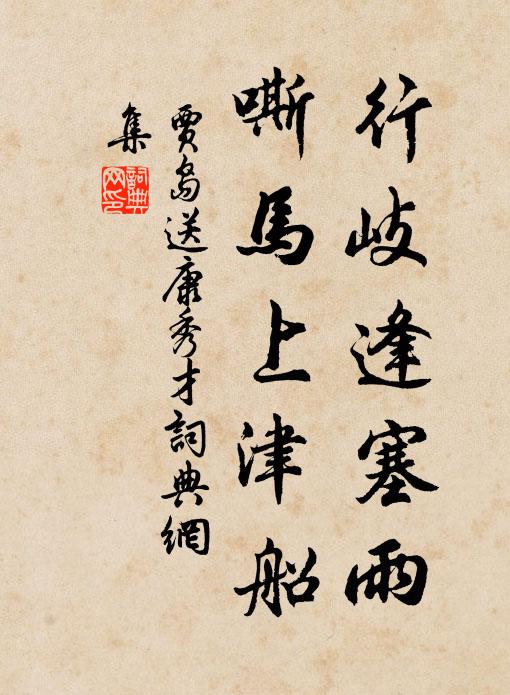 行岐逢塞雨
嘶馬上津船
賈島送康秀才詞典網
集
詞典
网印